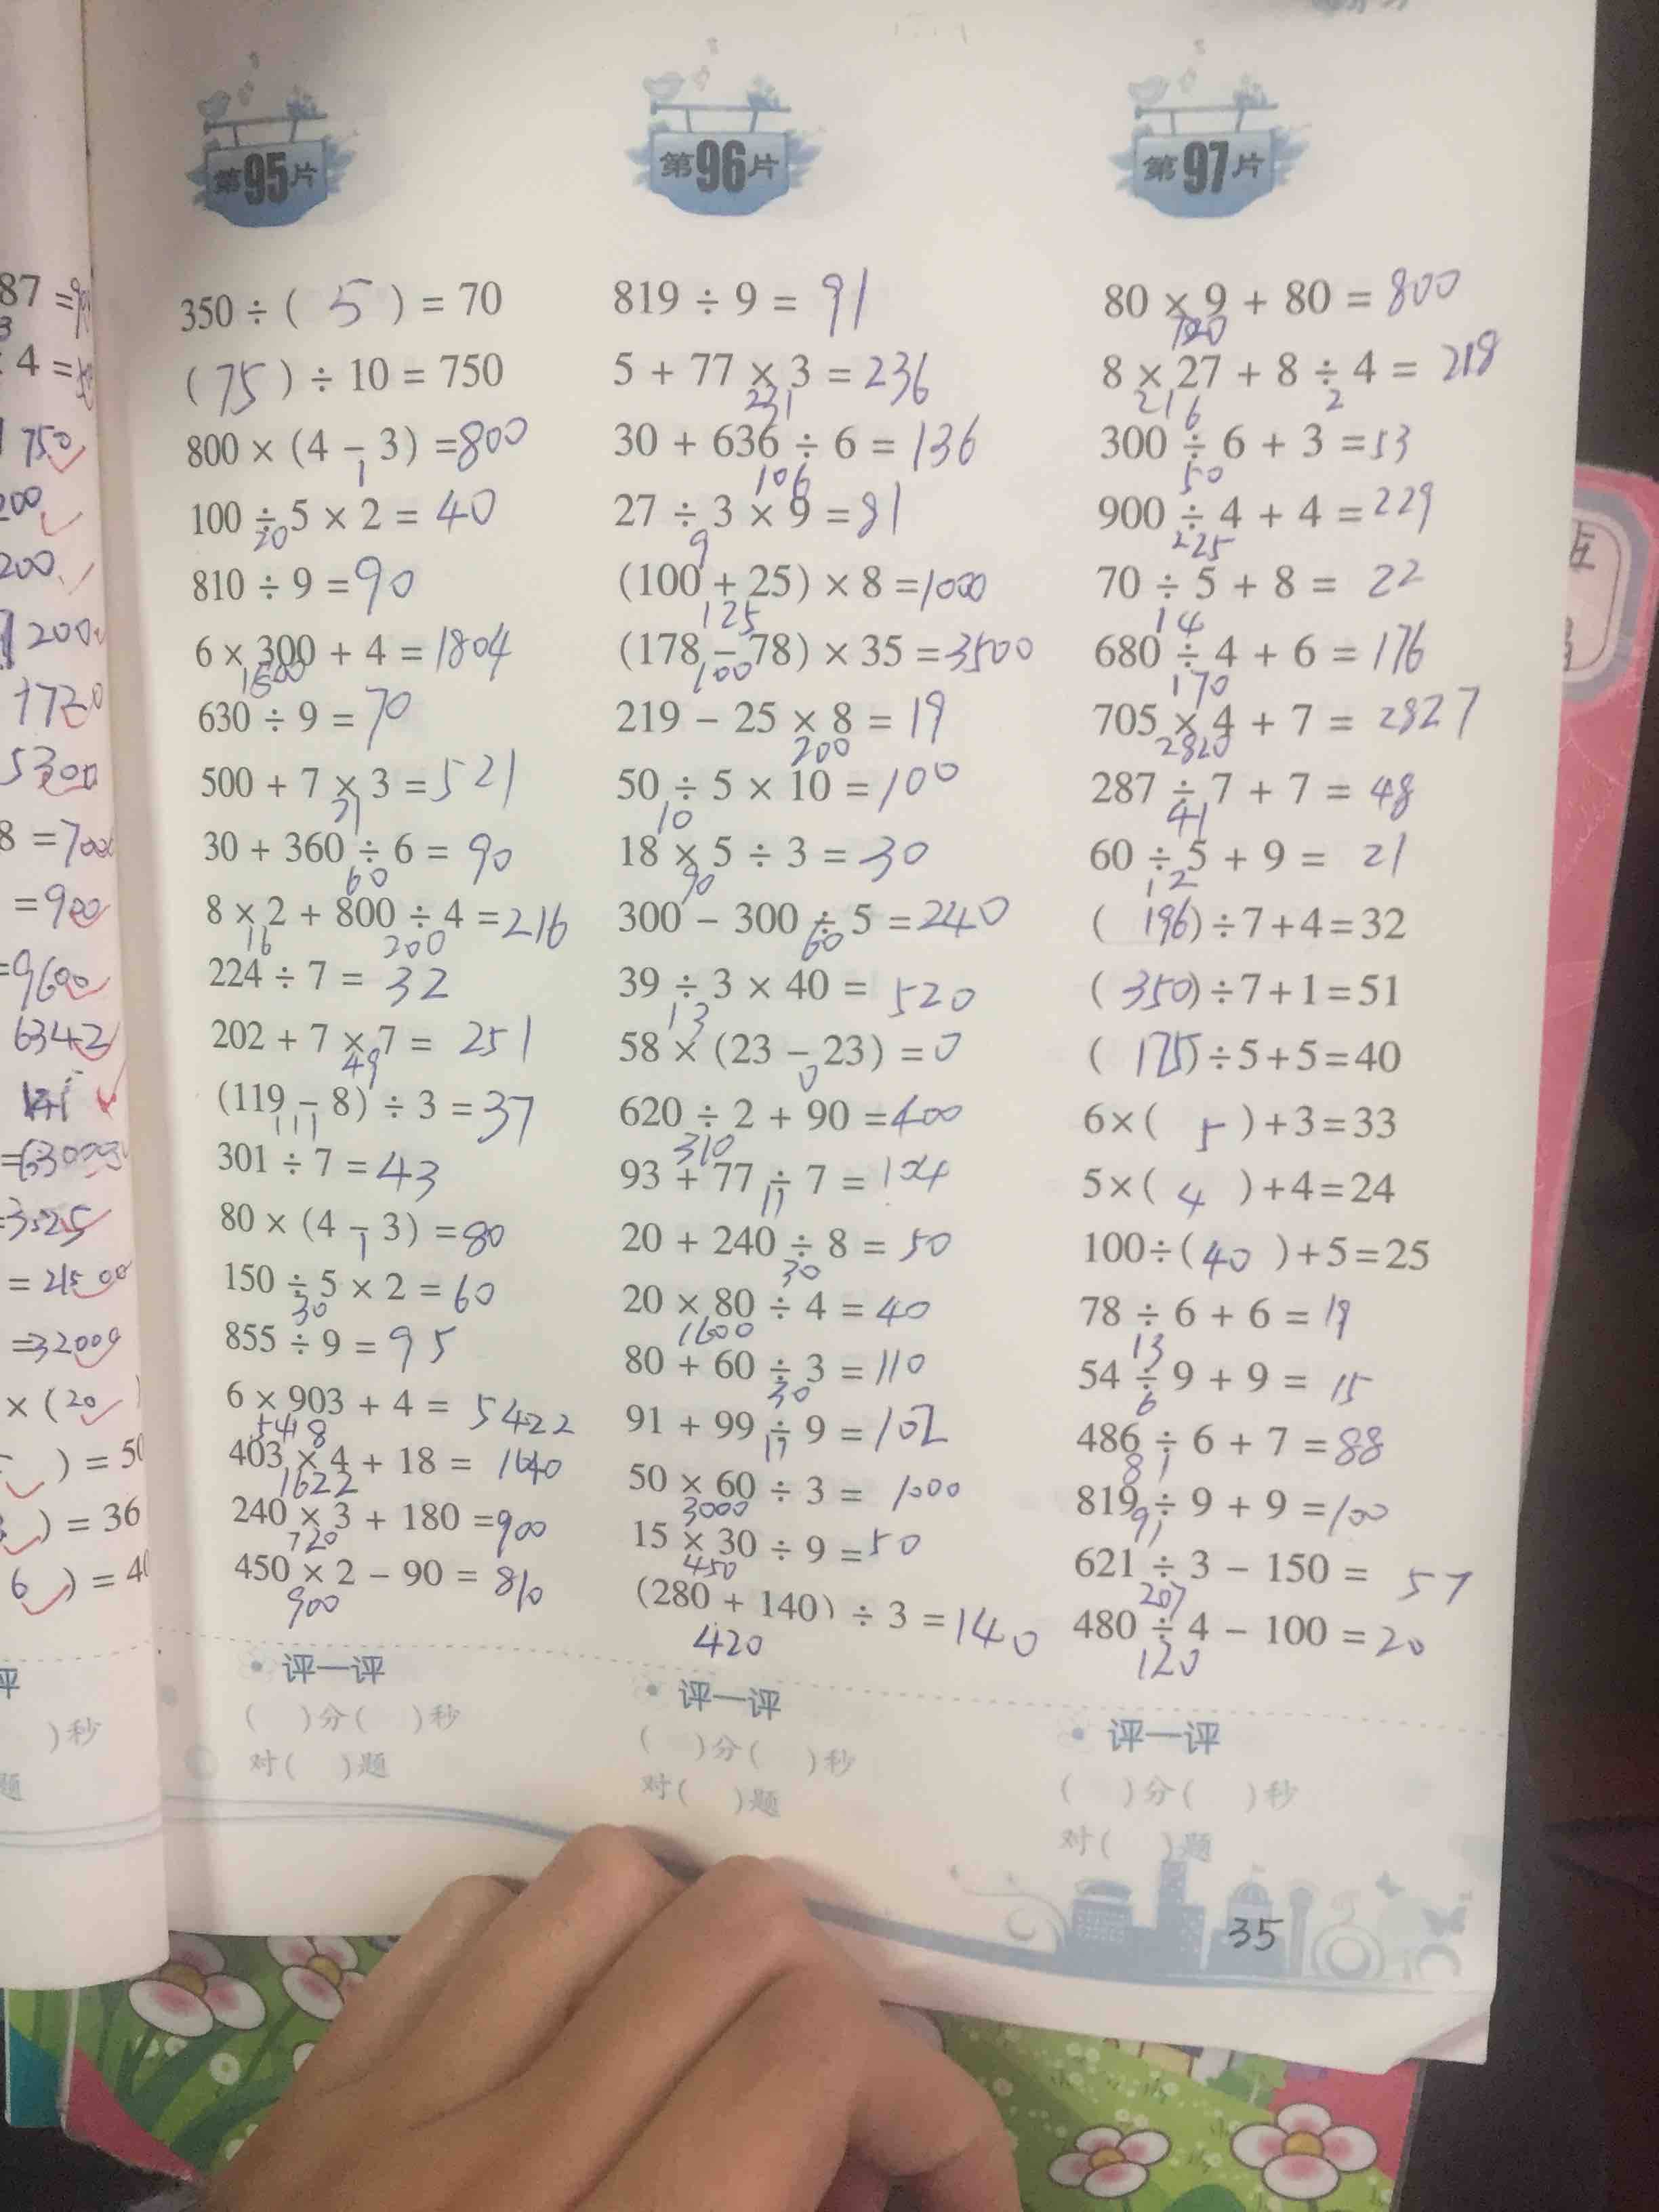 第95片
350 ÷ ( 5 ) = 70
( 75 ) ÷ 10 = 750
800 × (4 − 3) = 800
1
100 ÷ 5 × 2 = 40
20
810 ÷ 9 = 90
6 × 300 + 4 = 1804
1800
630 ÷ 9 = 70
500 + 7 × 3 = 521
21
30 + 360 ÷ 6 = 90
60
8 × 2 + 800 ÷ 4 = 216
16 200
224 ÷ 7 = 32
202 + 7 × 7 = 251
49
(119 − 8) ÷ 3 = 37
111
301 ÷ 7 = 43
80 × (4 − 3) = 80
1
150 ÷ 5 × 2 = 60
30
855 ÷ 9 = 95
6 × 903 + 4 = 5422
5418
403 × 4 + 18 = 1640
1622
240 × 3 + 180 = 900
720
450 × 2 − 90 = 810
900
评一评
( )分( )秒
对( )题
第96片
819 ÷ 9 = 91
5 + 77 × 3 = 236
231
30 + 636 ÷ 6 = 136
106
27 ÷ 3 × 9 = 81
9
(100 + 25) × 8 = 1000
125
(178 − 78) × 35 = 3500
100
219 − 25 × 8 = 19
200
50 ÷ 5 × 10 = 100
10
18 × 5 ÷ 3 = 30
90
300 − 300 ÷ 5 = 240
60
39 ÷ 3 × 40 = 520
13
58 × (23 − 23) = 0
0
620 ÷ 2 + 90 = 400
310
93 + 77 ÷ 7 = 104
11
20 + 240 ÷ 8 = 50
30
20 × 80 ÷ 4 = 40
1600
80 + 60 ÷ 3 = 110
30
91 + 99 ÷ 9 = 102
11
50 × 60 ÷ 3 = 1000
3000
15 × 30 ÷ 9 = 50
450
(280 + 140) ÷ 3 = 140
420
评一评
( )分( )秒
对( )题
第97片
80 × 9 + 80 = 800
720
8 × 27 + 8 ÷ 4 = 218
216 2
300 ÷ 6 + 3 = 53
50
900 ÷ 4 + 4 = 229
225
70 ÷ 5 + 8 = 22
14
680 ÷ 4 + 6 = 176
170
705 × 4 + 7 = 2827
2820
287 ÷ 7 + 7 = 48
41
60 ÷ 5 + 9 = 21
12
( 196 ) ÷ 7 + 4 = 32
( 350 ) ÷ 7 + 1 = 51
( 175 ) ÷ 5 + 5 = 40
6 × ( 5 ) + 3 = 33
5 × ( 4 ) + 4 = 24
100 ÷ ( 40 ) + 5 = 25
78 ÷ 6 + 6 = 19
13
54 ÷ 9 + 9 = 15
6
486 ÷ 6 + 7 = 88
81
819 ÷ 9 + 9 = 100
91
621 ÷ 3 − 150 = 57
207
480 ÷ 4 − 100 = 20
120
评一评
( )分( )秒
对( )题
35